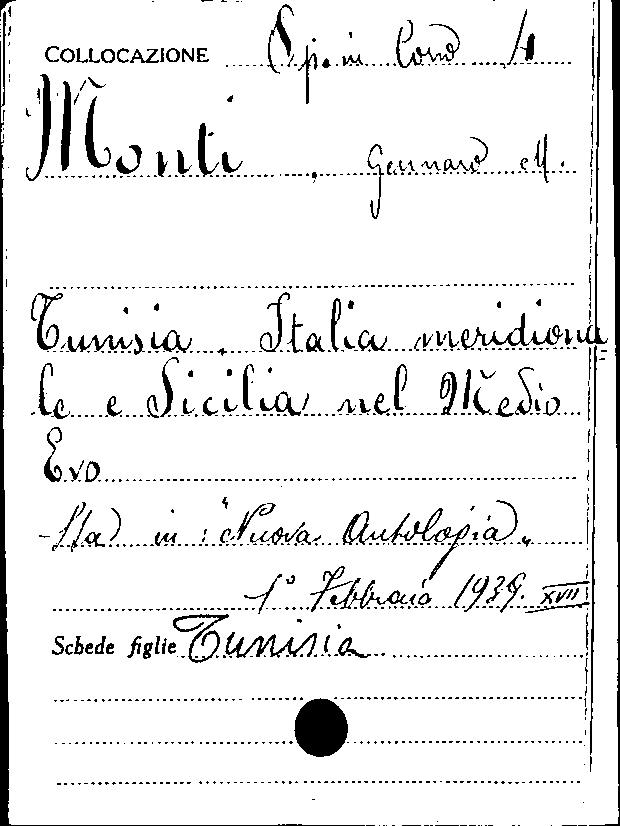 COLLOCAZIONE Op. in Cons 4
Monti, Gennaro M.
Tunisia, Italia meridiona
le e Sicilia nel Medio
Evo
- Sta in: "Nuova Antologia"
1° Febbraio 1939. XVII
Schede figlie Tunisia